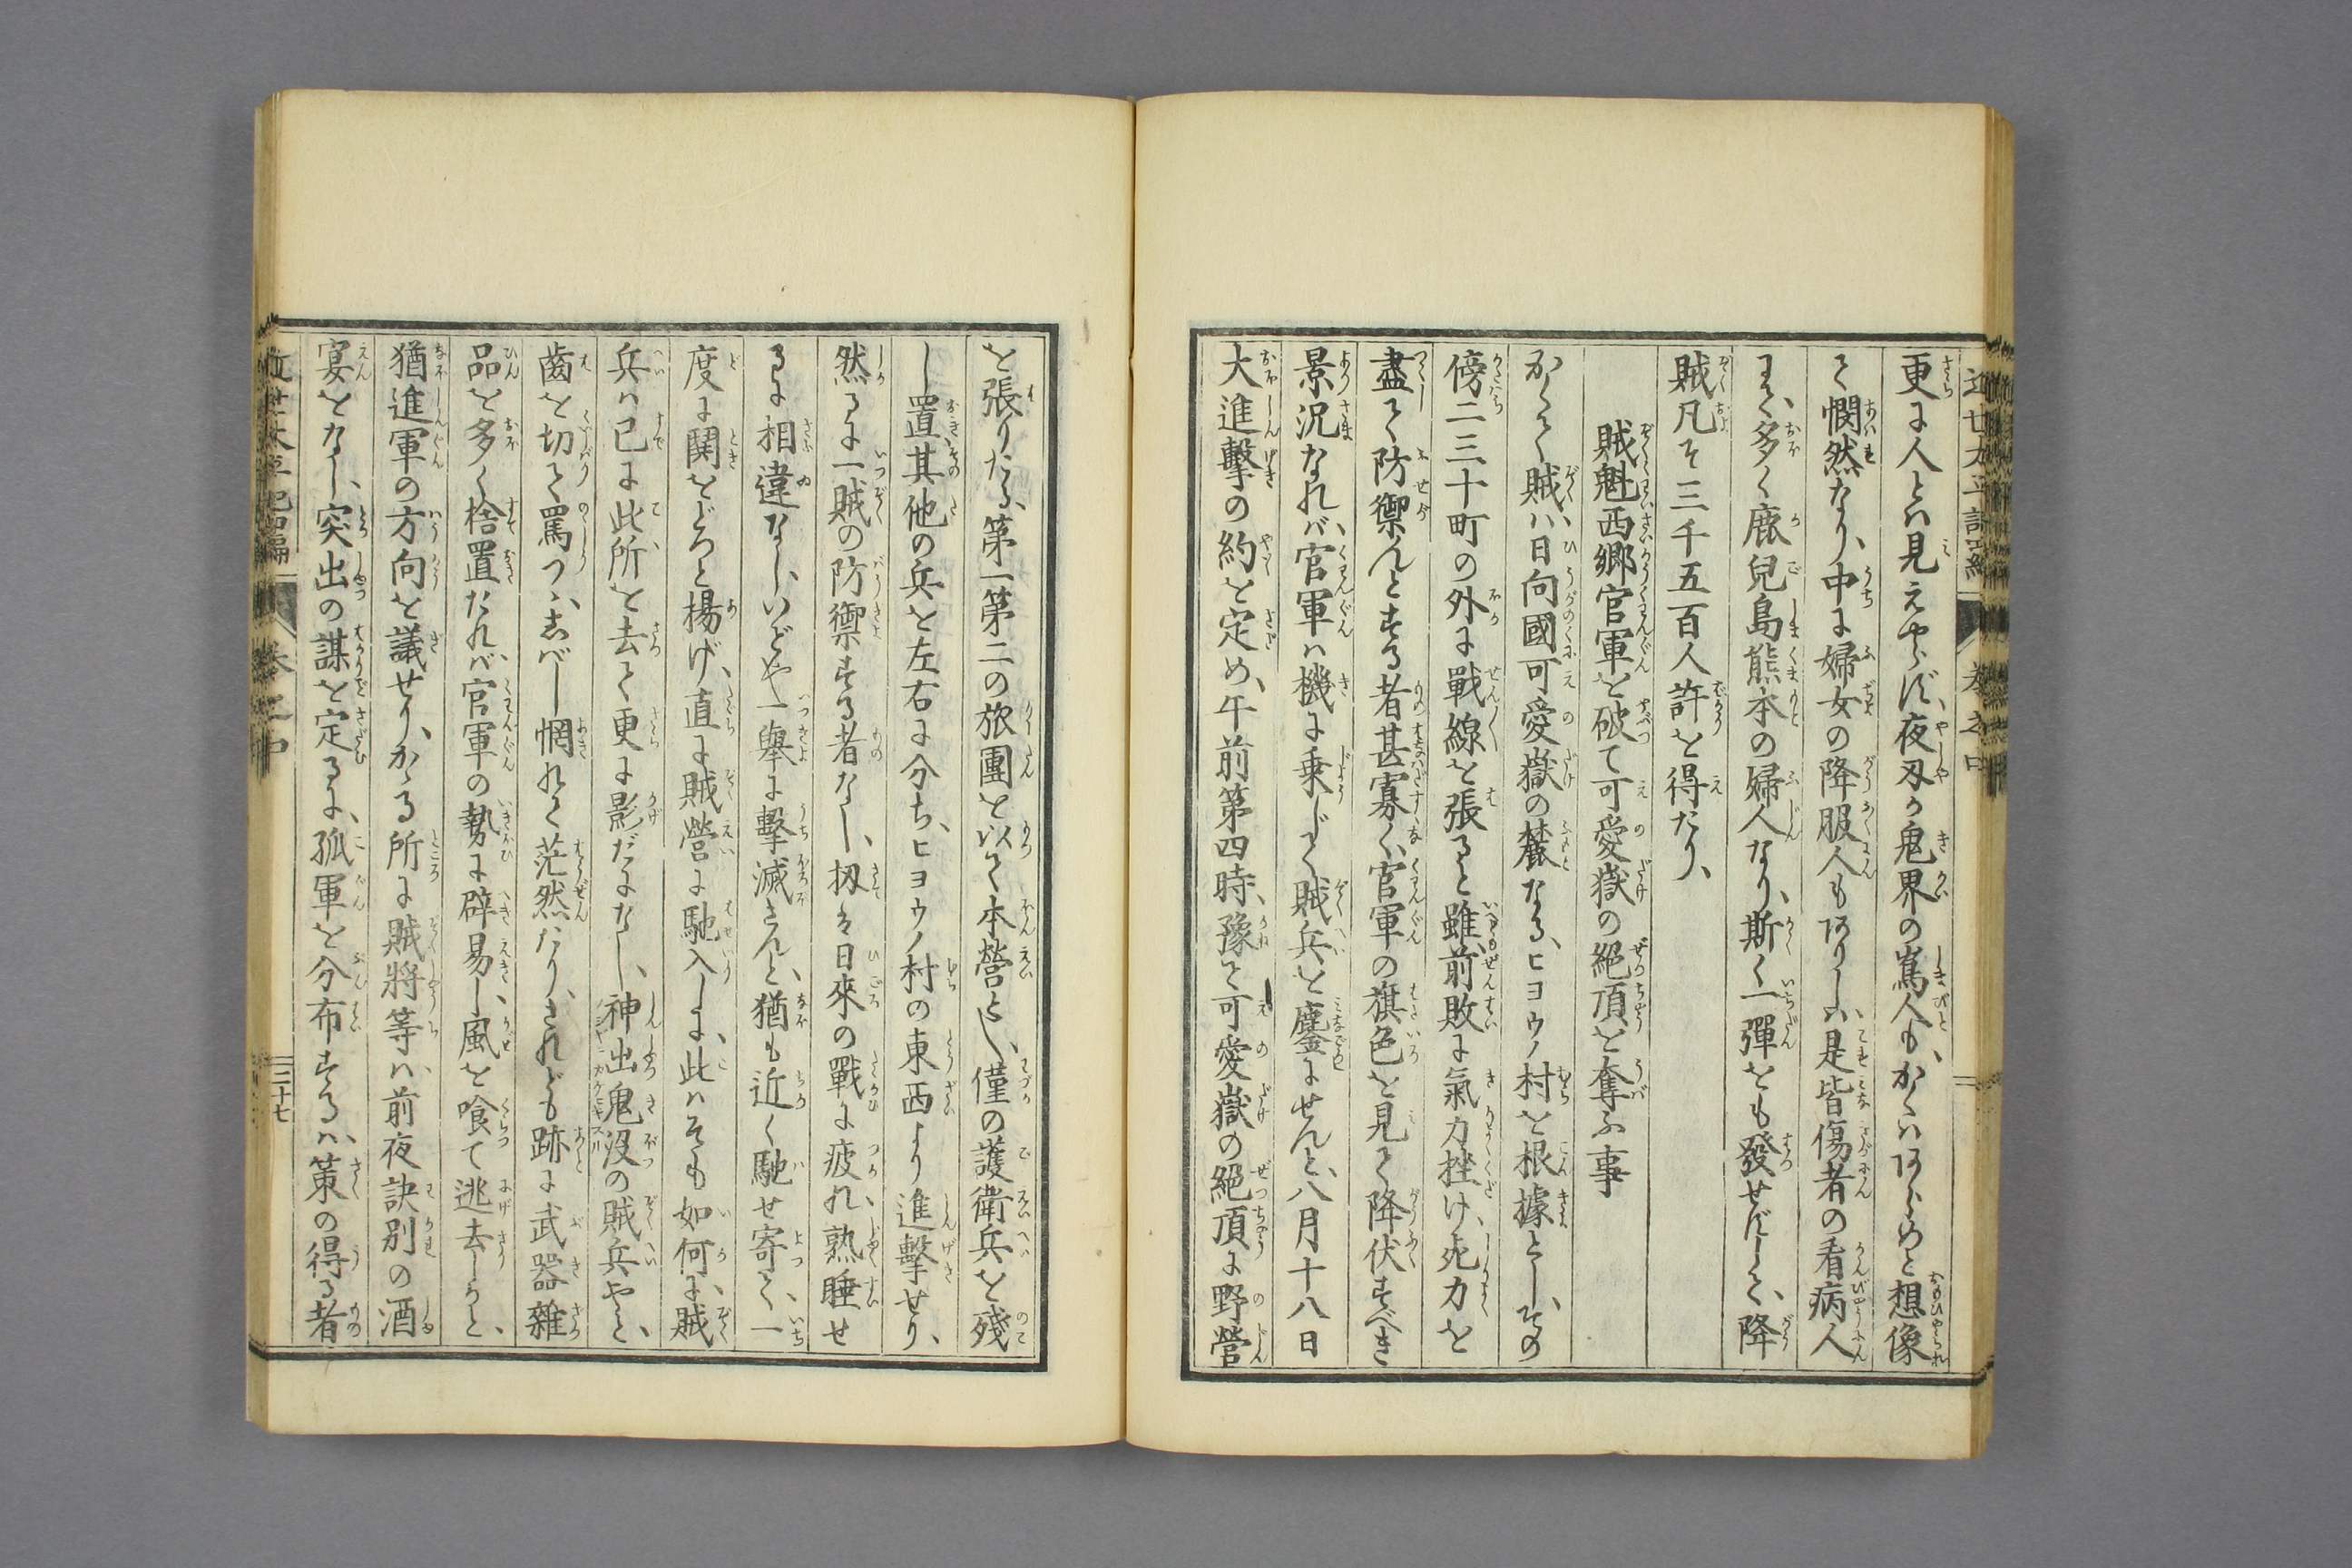 更に人とハ見えやらず、夜刄か鬼界の嶌人も、かくハあらめと想像
て憫然なり、中に婦女の降服人もありしハ、是皆傷者の看病人
にて、多く鹿兒島熊本の婦人なり、斯く一彈をも發せずして、降
賊凡そ三千五百人許を得たり、
賊魁西郷官軍を破て可愛嶽の絶頂を奪ふ事
かくて賊ハ、日向國可愛嶽の麓なる、ヒヨウノ村を根據とし、その
傍二三十町の外に戰線を張ると雖、前敗に氣力挫け、死力を
盡て防禦んとする者甚寡く、官軍の旗色を見て降伏すべき
景況なれバ、官軍ハ機に乗じて賊兵を鏖にせんと、八月十八日
大進擊の約を定め、午前第四時、豫て可愛嶽の絶頂に野營
を張りたる、第一第二の旅團を以て本營とし、僅の護衛兵を殘
し置其他の兵を左右に分ち、ヒヨウノ村の東西より進擊せり、
然るに一賊の防禦する者なし、扨ハ日來の戰に疲れ、熟睡せ
るに相違なし、いどや一舉に擊滅さんと、猶も近く馳せ寄て、一
度に鬨をどつと揚げ、直に賊營に馳入しに、此ハそも如何に、賊
兵ハ已に此所を去て更に影だになし、神出鬼沒の賊兵やと、
齒を切て罵つゝ、しバし惘れて茫然たり、されども跡に武器雜
品を多く捨置たれバ、官軍の勢に辟易し、風を喰て逃去しらと、
猶進軍の方向を議せり、かゝる所に賊將等ハ、前夜訣別の酒
宴をなし、突出の謀を定るに、孤軍を分布するハ、策の得る者
近世太平記四編
卷之中
三十七